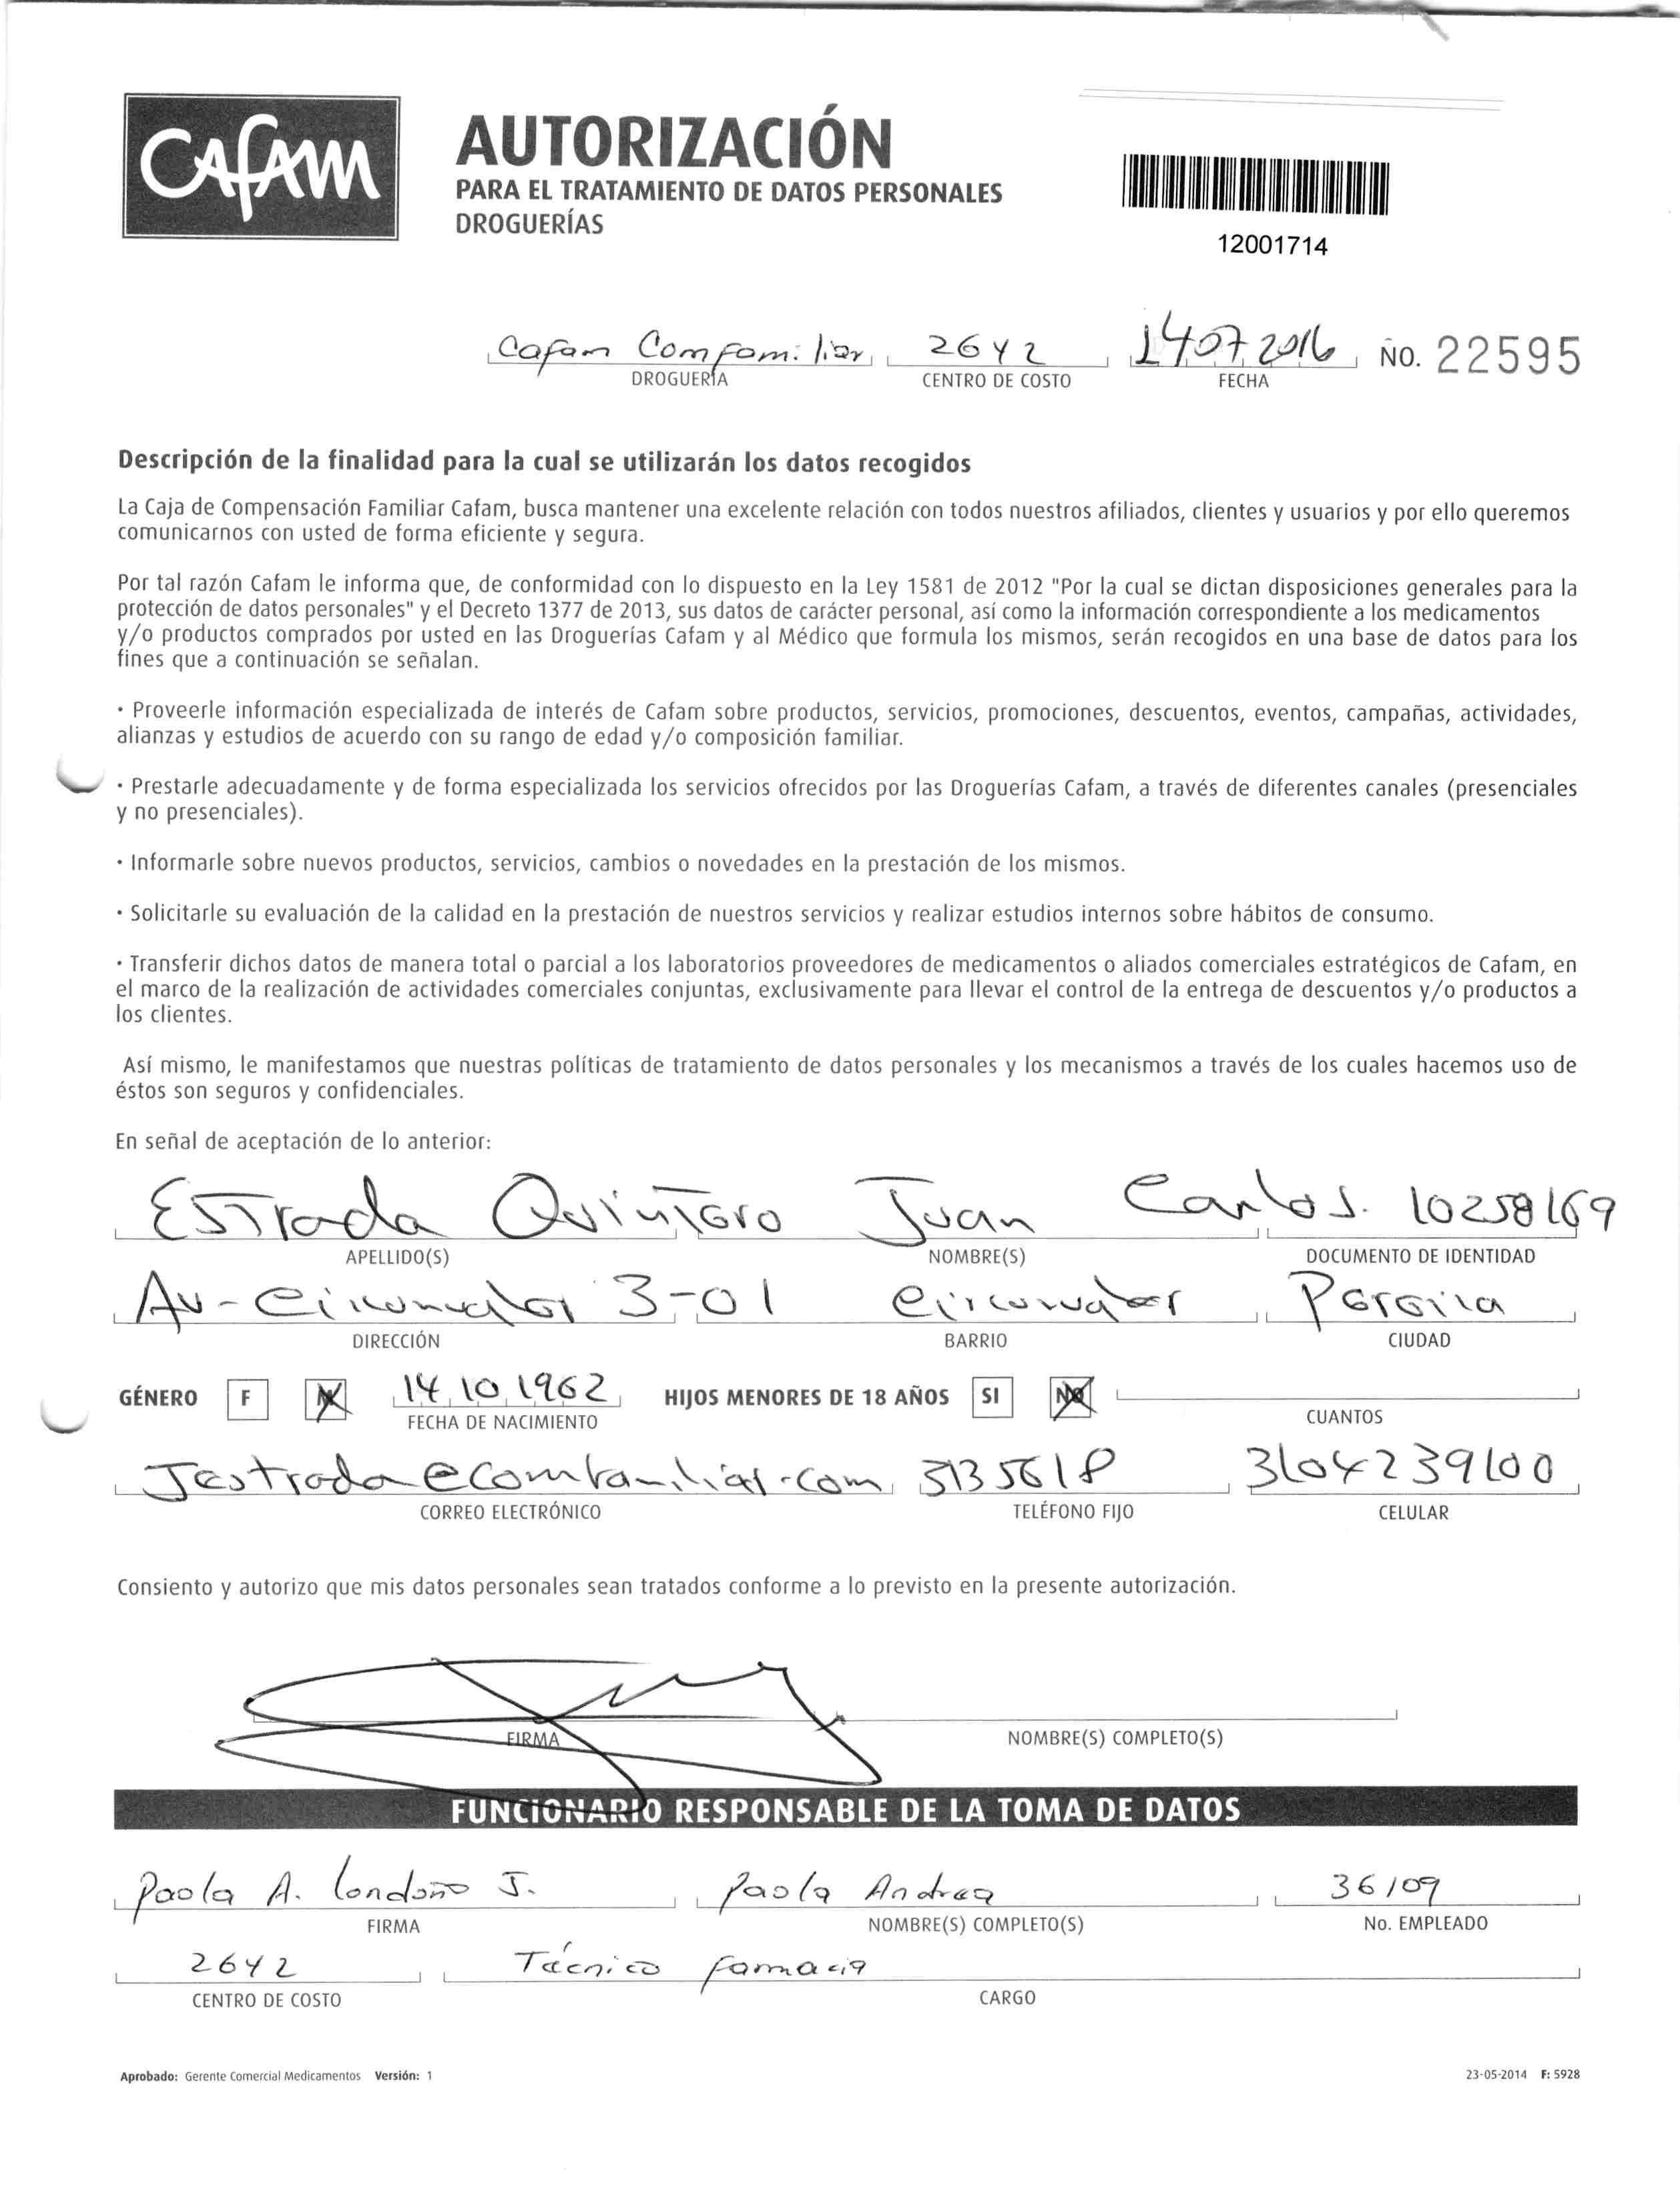 CAFAM
AUTORIZACIÓN
PARA EL TRATAMIENTO DE DATOS PERSONALES
DROGUERÍAS
12001714
Cafam Comfamiliar 2642 14 07 2016 No. 22595
DROGUERÍA CENTRO DE COSTO FECHA
Descripción de la finalidad para la cual se utilizarán los datos recogidos
La Caja de Compensación Familiar Cafam, busca mantener una excelente relación con todos nuestros afiliados, clientes y usuarios y por ello queremos
comunicarnos con usted de forma eficiente y segura.
Por tal razón Cafam le informa que, de conformidad con lo dispuesto en la Ley 1581 de 2012 "Por la cual se dictan disposiciones generales para la
protección de datos personales" y el Decreto 1377 de 2013, sus datos de carácter personal, así como la información correspondiente a los medicamentos
y/o productos comprados por usted en las Droguerías Cafam y al Médico que formula los mismos, serán recogidos en una base de datos para los
fines que a continuación se señalan.
· Proveerle información especializada de interés de Cafam sobre productos, servicios, promociones, descuentos, eventos, campañas, actividades,
alianzas y estudios de acuerdo con su rango de edad y/o composición familiar.
· Prestarle adecuadamente y de forma especializada los servicios ofrecidos por las Droguerías Cafam, a través de diferentes canales (presenciales
y no presenciales).
· Informarle sobre nuevos productos, servicios, cambios o novedades en la prestación de los mismos.
· Solicitarle su evaluación de la calidad en la prestación de nuestros servicios y realizar estudios internos sobre hábitos de consumo.
· Transferir dichos datos de manera total o parcial a los laboratorios proveedores de medicamentos o aliados comerciales estratégicos de Cafam, en
el marco de la realización de actividades comerciales conjuntas, exclusivamente para llevar el control de la entrega de descuentos y/o productos a
los clientes.
Así mismo, le manifestamos que nuestras políticas de tratamiento de datos personales y los mecanismos a través de los cuales hacemos uso de
éstos son seguros y confidenciales.
En señal de aceptación de lo anterior:
Estrada Quintero Juan Carlos. 10258169
APELLIDO(S) NOMBRE(S) DOCUMENTO DE IDENTIDAD
Av- Circunvalar 3-01 circunvalar Pereira
DIRECCIÓN BARRIO CIUDAD
GÉNERO F M 14 10 1962 HIJOS MENORES DE 18 AÑOS SI NO
FECHA DE NACIMIENTO CUANTOS
Jestrada@comfamiliar.com 3135618 3104239100
CORREO ELECTRÓNICO TELÉFONO FIJO CELULAR
Consiento y autorizo que mis datos personales sean tratados conforme a lo previsto en la presente autorización.
FIRMA NOMBRE(S) COMPLETO(S)
FUNCIONARIO RESPONSABLE DE LA TOMA DE DATOS
Paola A. Londoño J. Paola Andrea 36109
FIRMA NOMBRE(S) COMPLETO(S) No. EMPLEADO
2642 Técnico farmacia
CENTRO DE COSTO CARGO
Aprobado: Gerente Comercial Medicamentos Versión: 1 23-05-2014 F: 5928